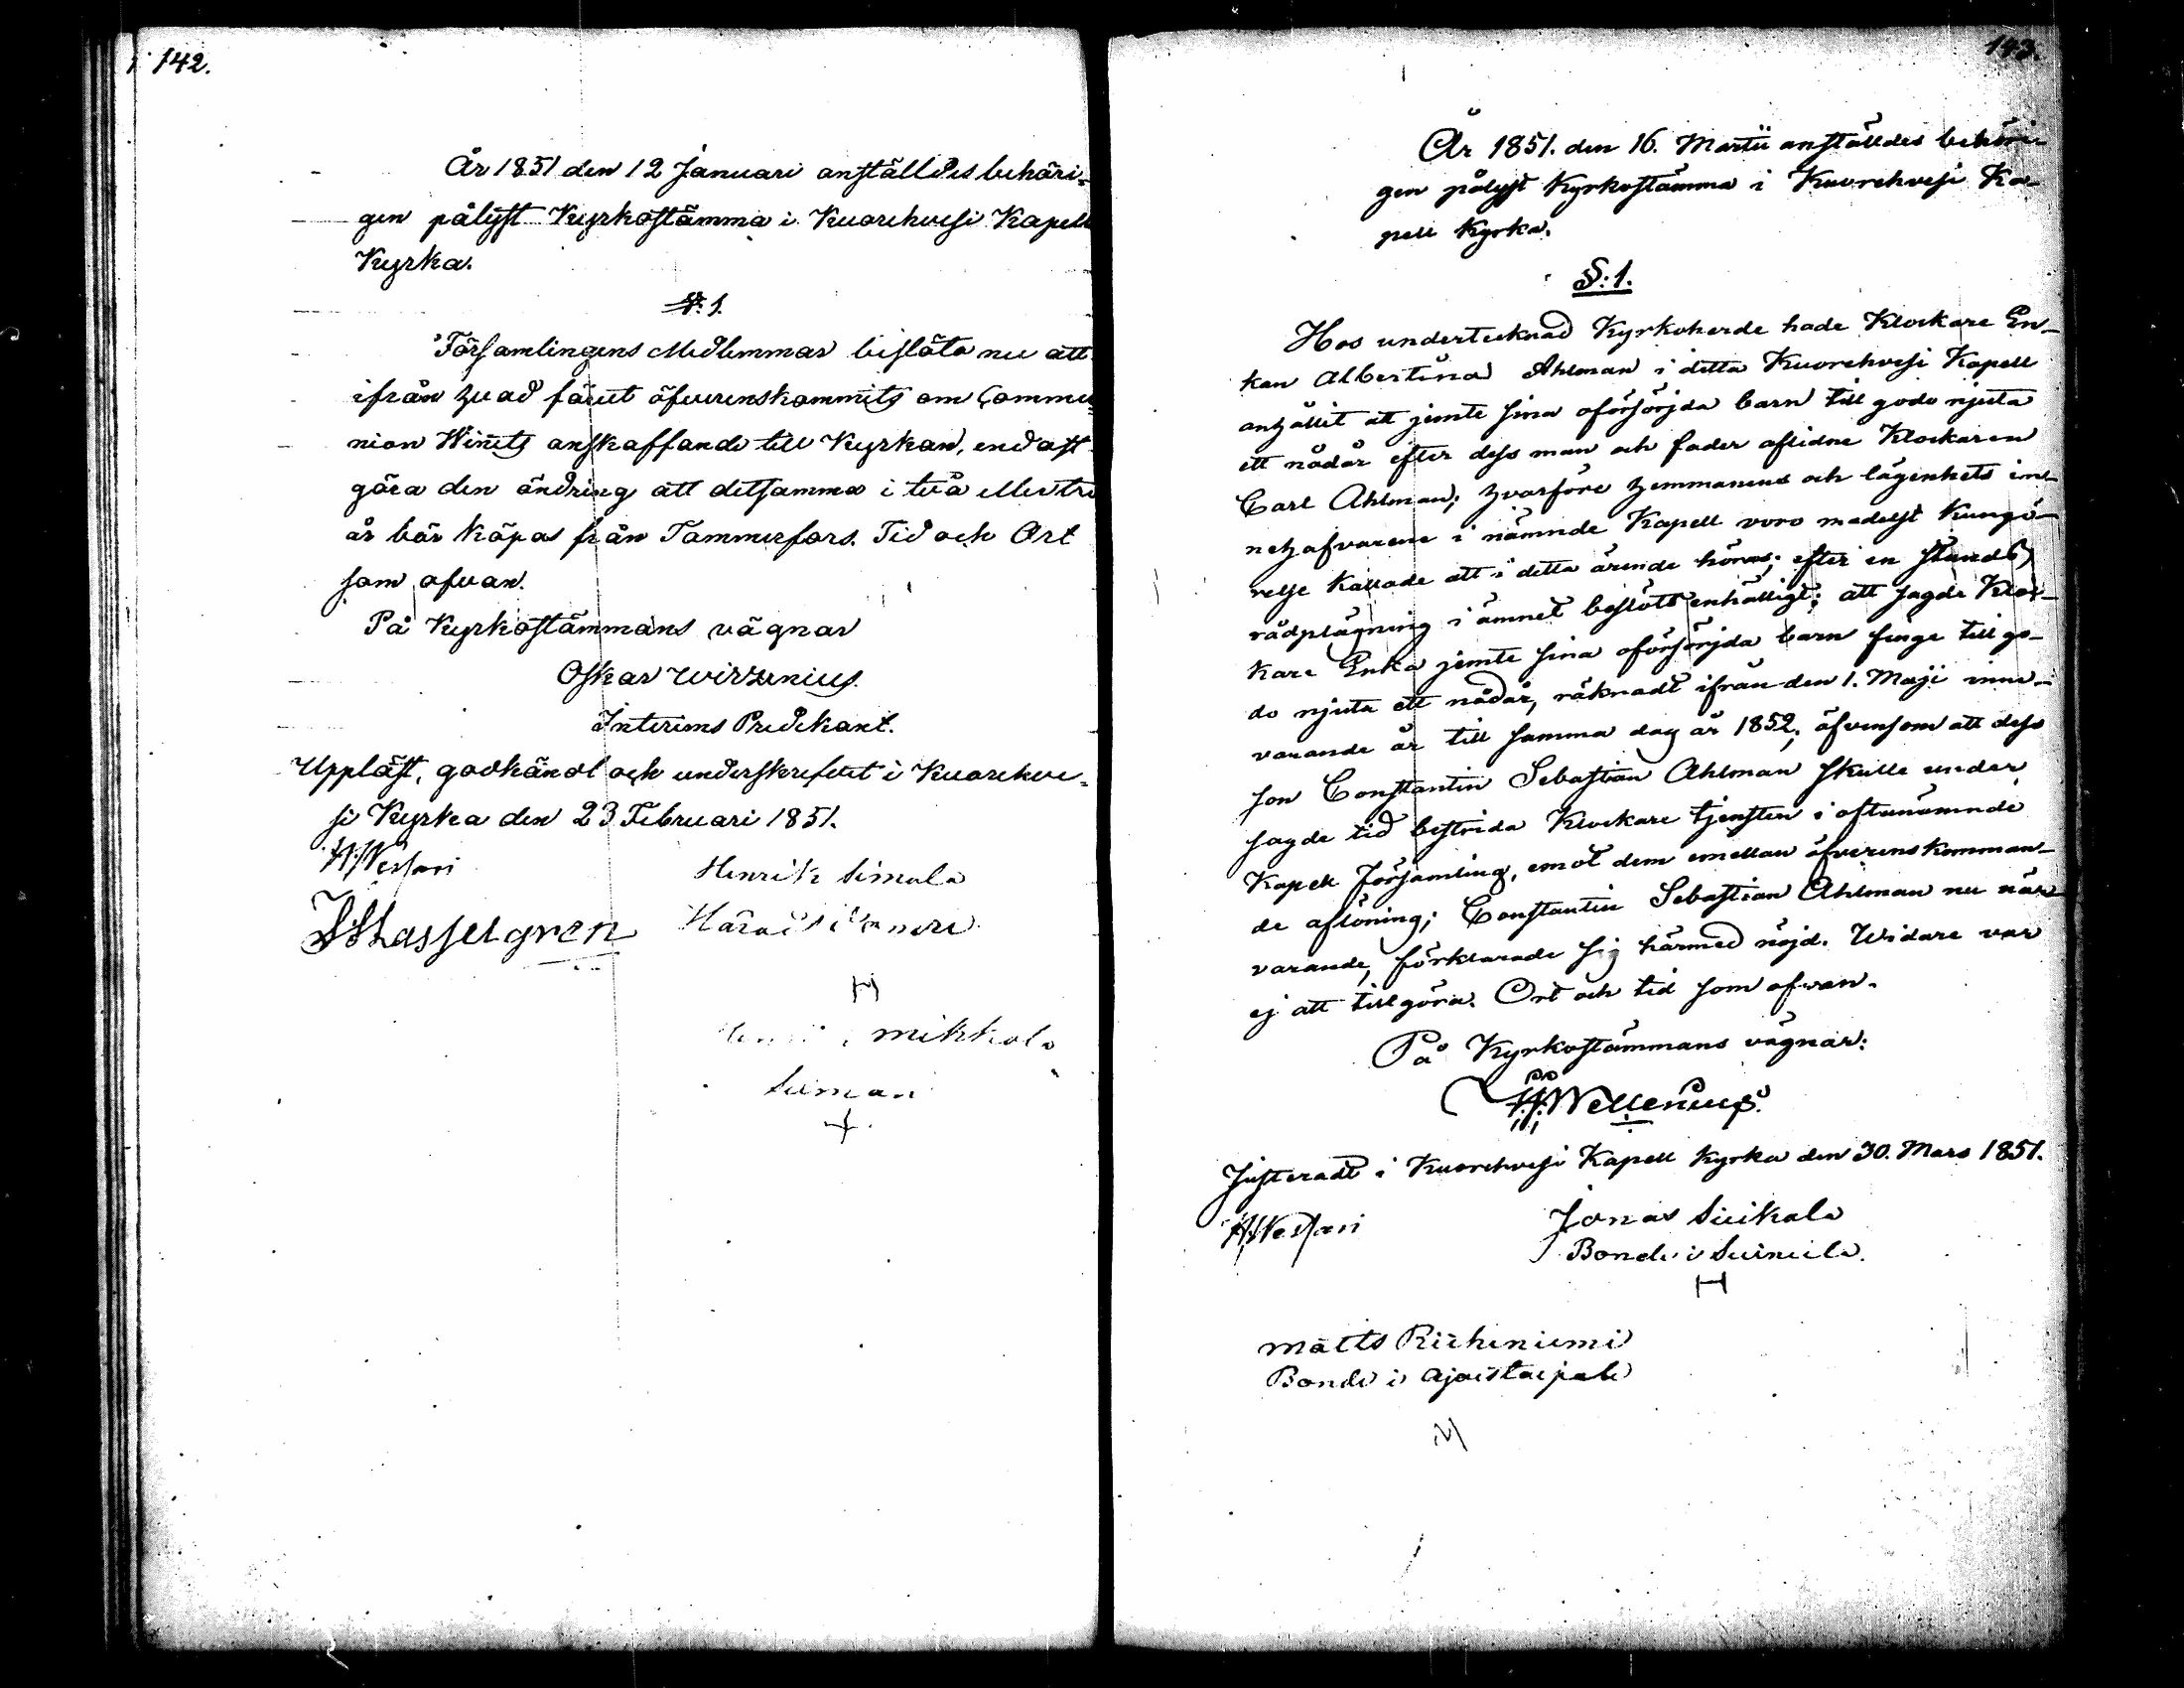 142.
År 1851 den 12 Januari anställdes behöri-
gen pålyst Kyrkostämma i Kuorehvesi Kapell
Kyrka.
§. 1.
Församlingens Medlemmar beslöto nu att
ifrån hvad förut öfverenskommits om Commu-
nion Winets anskaffande till Kyrkan, endast
göra den ändring att detsamma i två eller tre
år bör köpas från Tammerfors. Tid och Ort
som ofvan.
På Kyrkostämmans vägnar
Oskar Wirzenius.
Interims Predikant.
Uppläst, godkändt och underskrifvet i Kuorehve-
si Kyrka den 23 Februari 1851.
Henrik Simula
J Hasselgren
mikkola
143.
År 1851. den 16. Martii anställdes behöri-
gen pålyst Kyrkostämma i Kuorehvesi Ka-
pell Kyrka.
§: 1.
Hos undertecknad Kyrkoherde hade Klockare En-
kan Albertina Ahlman i detta Kuorehvesi Kapell
anhållit att jemte sina oförsörjda barn till godo njuta
ett nådår efter dess man och fader aflidne Klockaren
Carl Ahlman; hvarföre hemmanens och lägenhets in-
nehafvarene i nämnde Kapell voro medelst kungö-
relse kallade att i detta ärende höras; efter en stunds
rådplägning i ämnet beslöts enhälligt; att sagde Kloc-
kare Enka jemte sina oförsörjda barn finge till go-
do njuta ett nådår, räknadt ifrån den 1. Maji inne-
varande år till samma dag år 1852; äfvensom att dess
son Constantin Sebastian Ahlman skulle under
sagde tid bestrida Klockare tjensten i oftanämnde
Kapell församling, emot dem emellan öfverenskomman-
de aflöning; Constantin Sebastian Ahlman nu när-
varande, förklarade sig härmed nöjd. Widare var
ej att tillgöra. Ort och tid som ofvan.
På Kyrkostämmans vägnar:
Wellenius.
Justeradt i Kuorehvesi Kapell Kyrka den 30. Mars 1851.
Jonas Suikala
Bonde i Suinula.
Matts Riihiniemi
Bonde i Ajostaipale